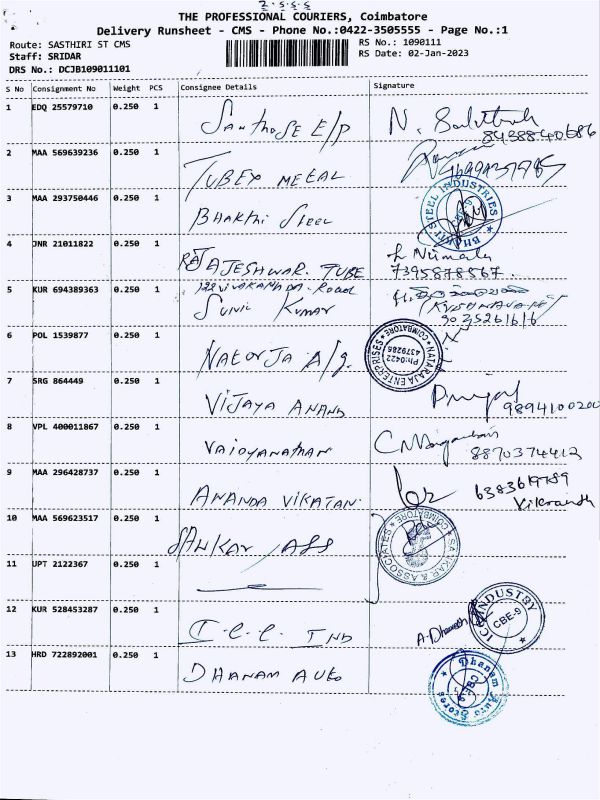 2.5.5.5
THE PROFESSIONAL COURIERS, Coimbatore
Delivery Runsheet - CMS - Phone No.:0422-3505555 - Page No.:1
Route: SASTHIRI ST CMS
RS No.: 1090111
Staff: SRIDAR
RS Date: 02-Jan-2023
DRS No.: DCJB109011101
S No Consignment No Weight PCS Consignee Details Signature
1 EDQ 25579710 0.250 1 Santhose E/P N.
8438840686
2 MAA 569639236 0.250 1 Tubex Metal
3 MAA 293750446 0.250 1 Bhakthi Steel
BHAKTI STEEL INDUSTRIES
4 JNR 21011822 0.250 1 Rajeshwar. Tube Nirmala
7395878567.
5 KUR 694389363 0.250 1 Road
Kumar
9035261616
6 POL 1539877 0.250 1 Natorja A/g.
NATARAJA ENTERPRISES COIMBATORE
Ph:0422
4379286
7 SRG 864449 0.250 1 Vijaya Anand
9894100200
8 VPL 400011867 0.250 1 Vaidyanathan
8870374412
9 MAA 296428737 0.250 1 Ananda Vikatan
6383619789
Vikranth
10 MAA 569623517 0.250 1 Sankar Ass
SANKAR & ASSOCIATES COIMBATORE
11 UPT 2122367 0.250 1
12 KUR 528453287 0.250 1 I.C.C. Ind A. Dhanush
ICC INDUSTRY
CBE-9
13 HRD 722892001 0.250 1 Dhanam Auto
Dhanam Auto Stores
CBE-9